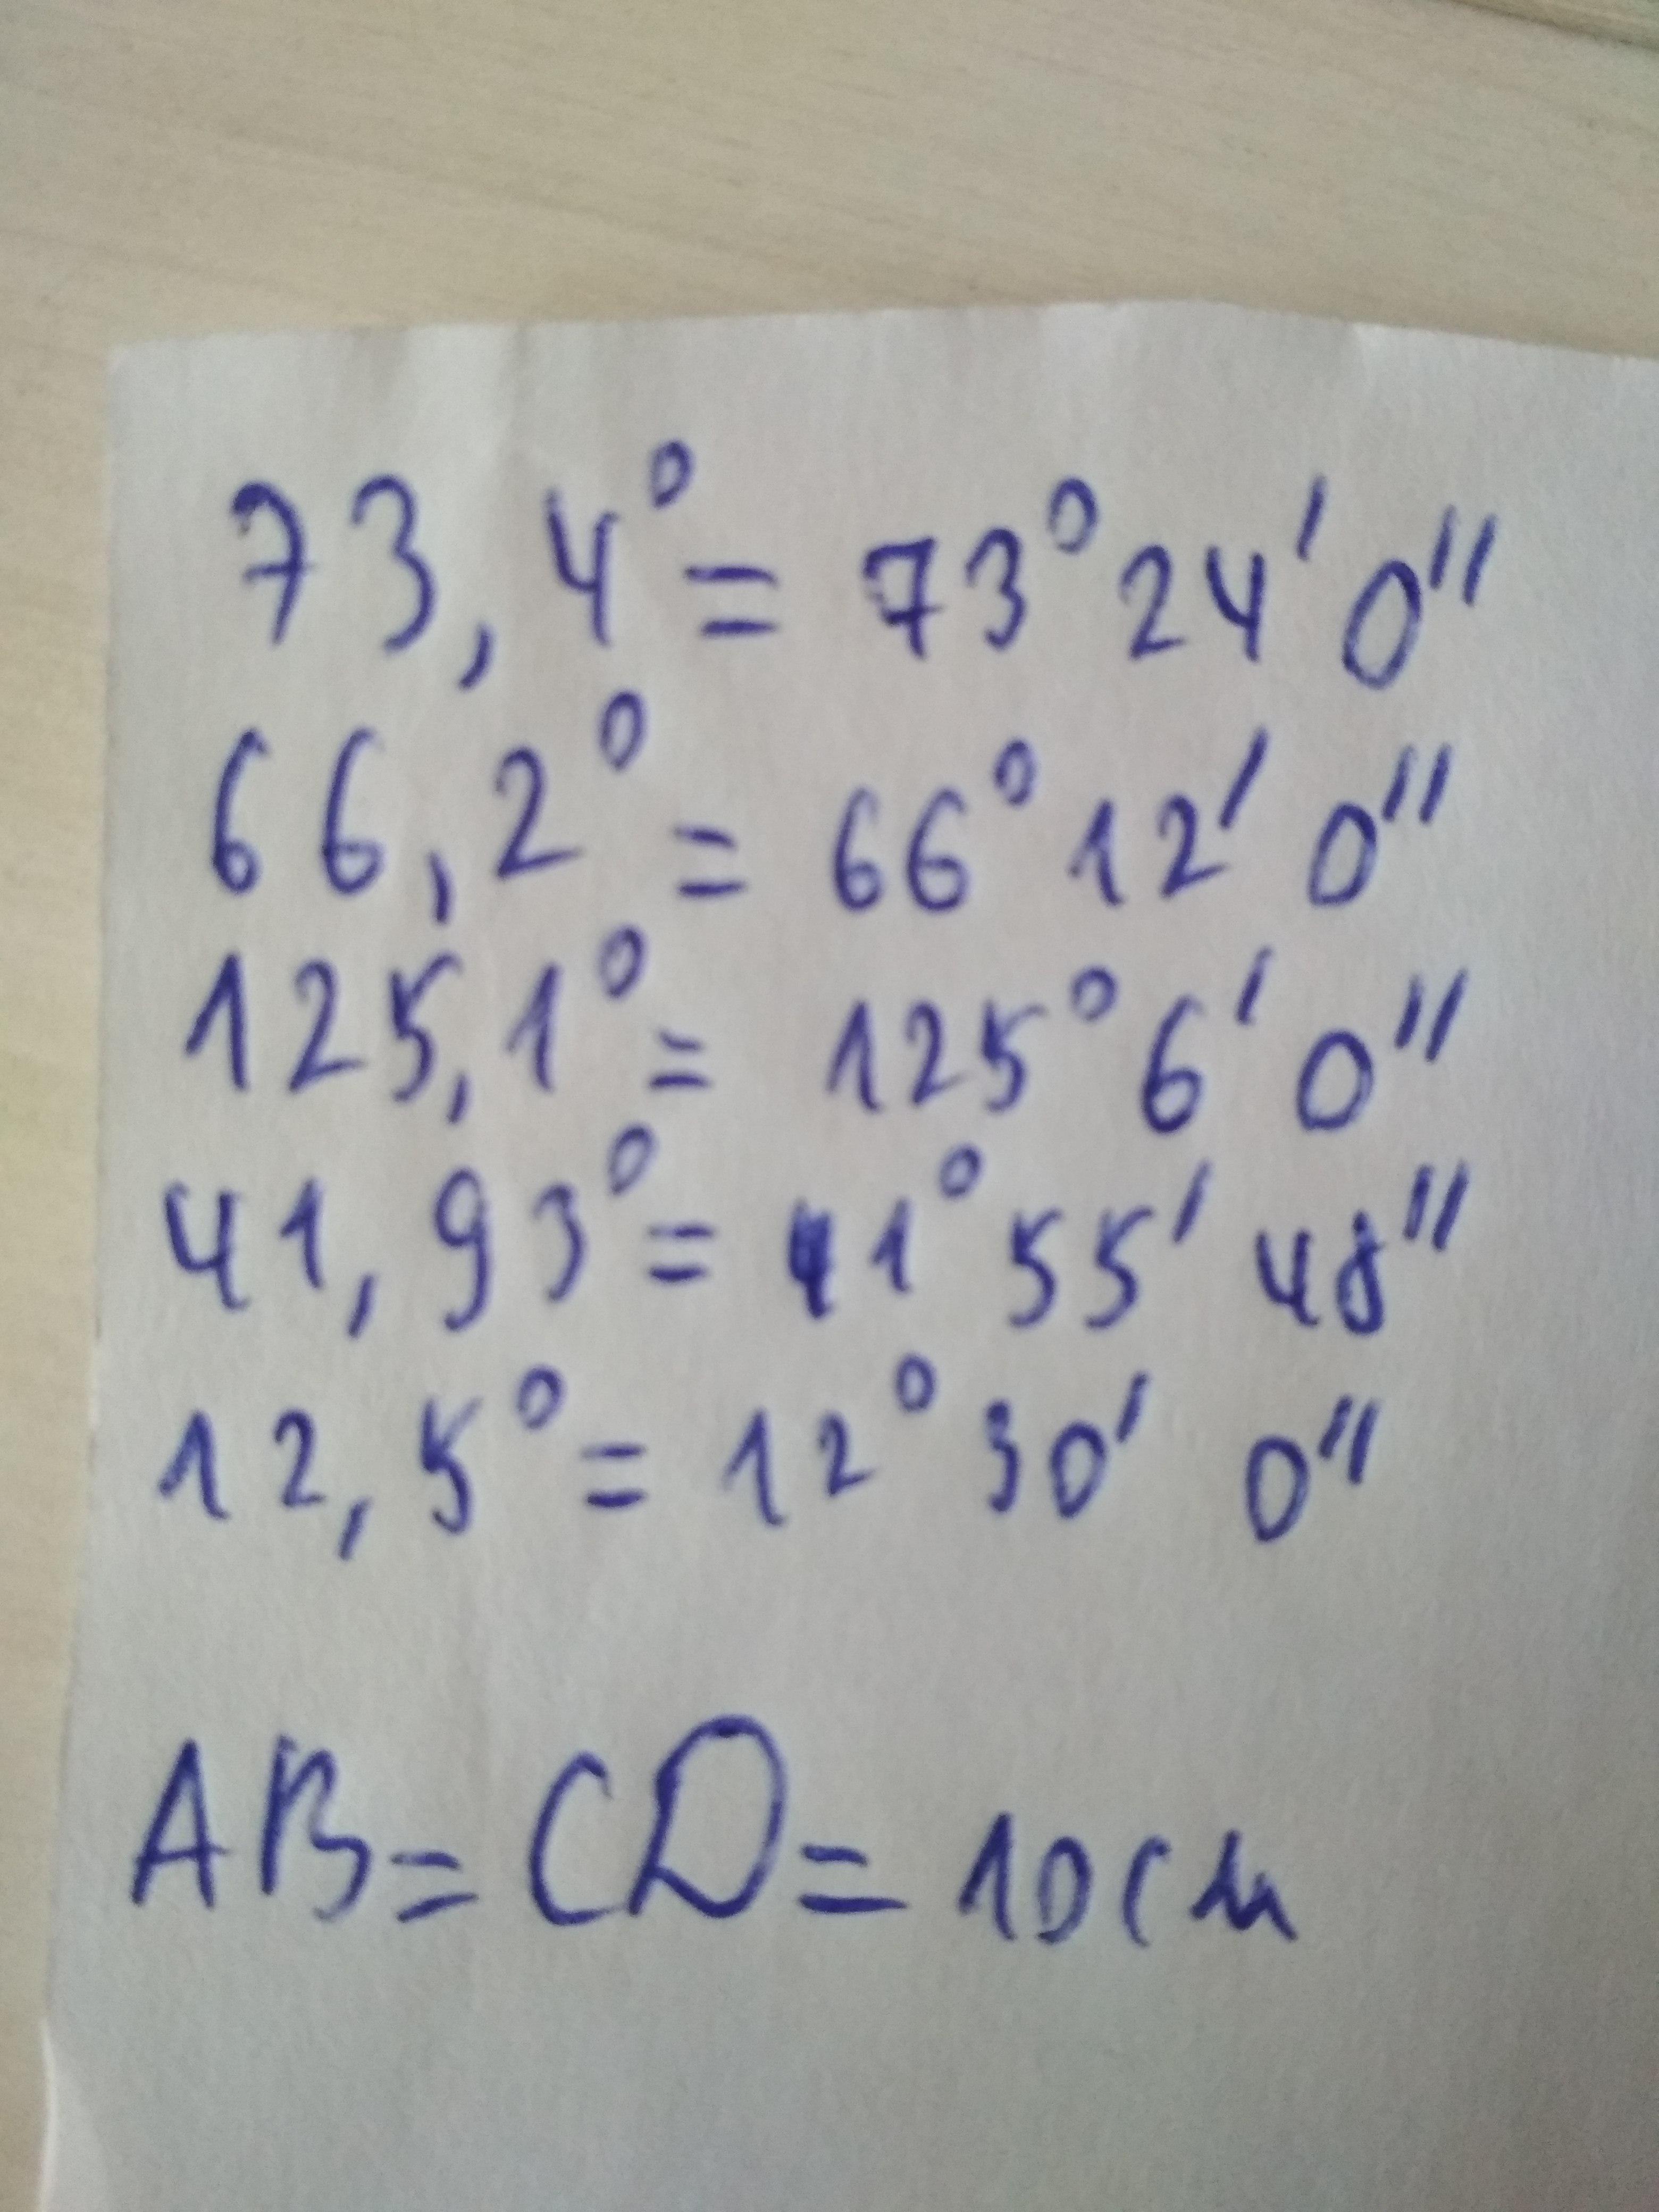 73,4° = 73° 24' 0''
66,2° = 66° 12' 0''
125,1° = 125° 6' 0''
41,93° = 41° 55' 48''
12,5° = 12° 30' 0''
AB = CD = 10 см